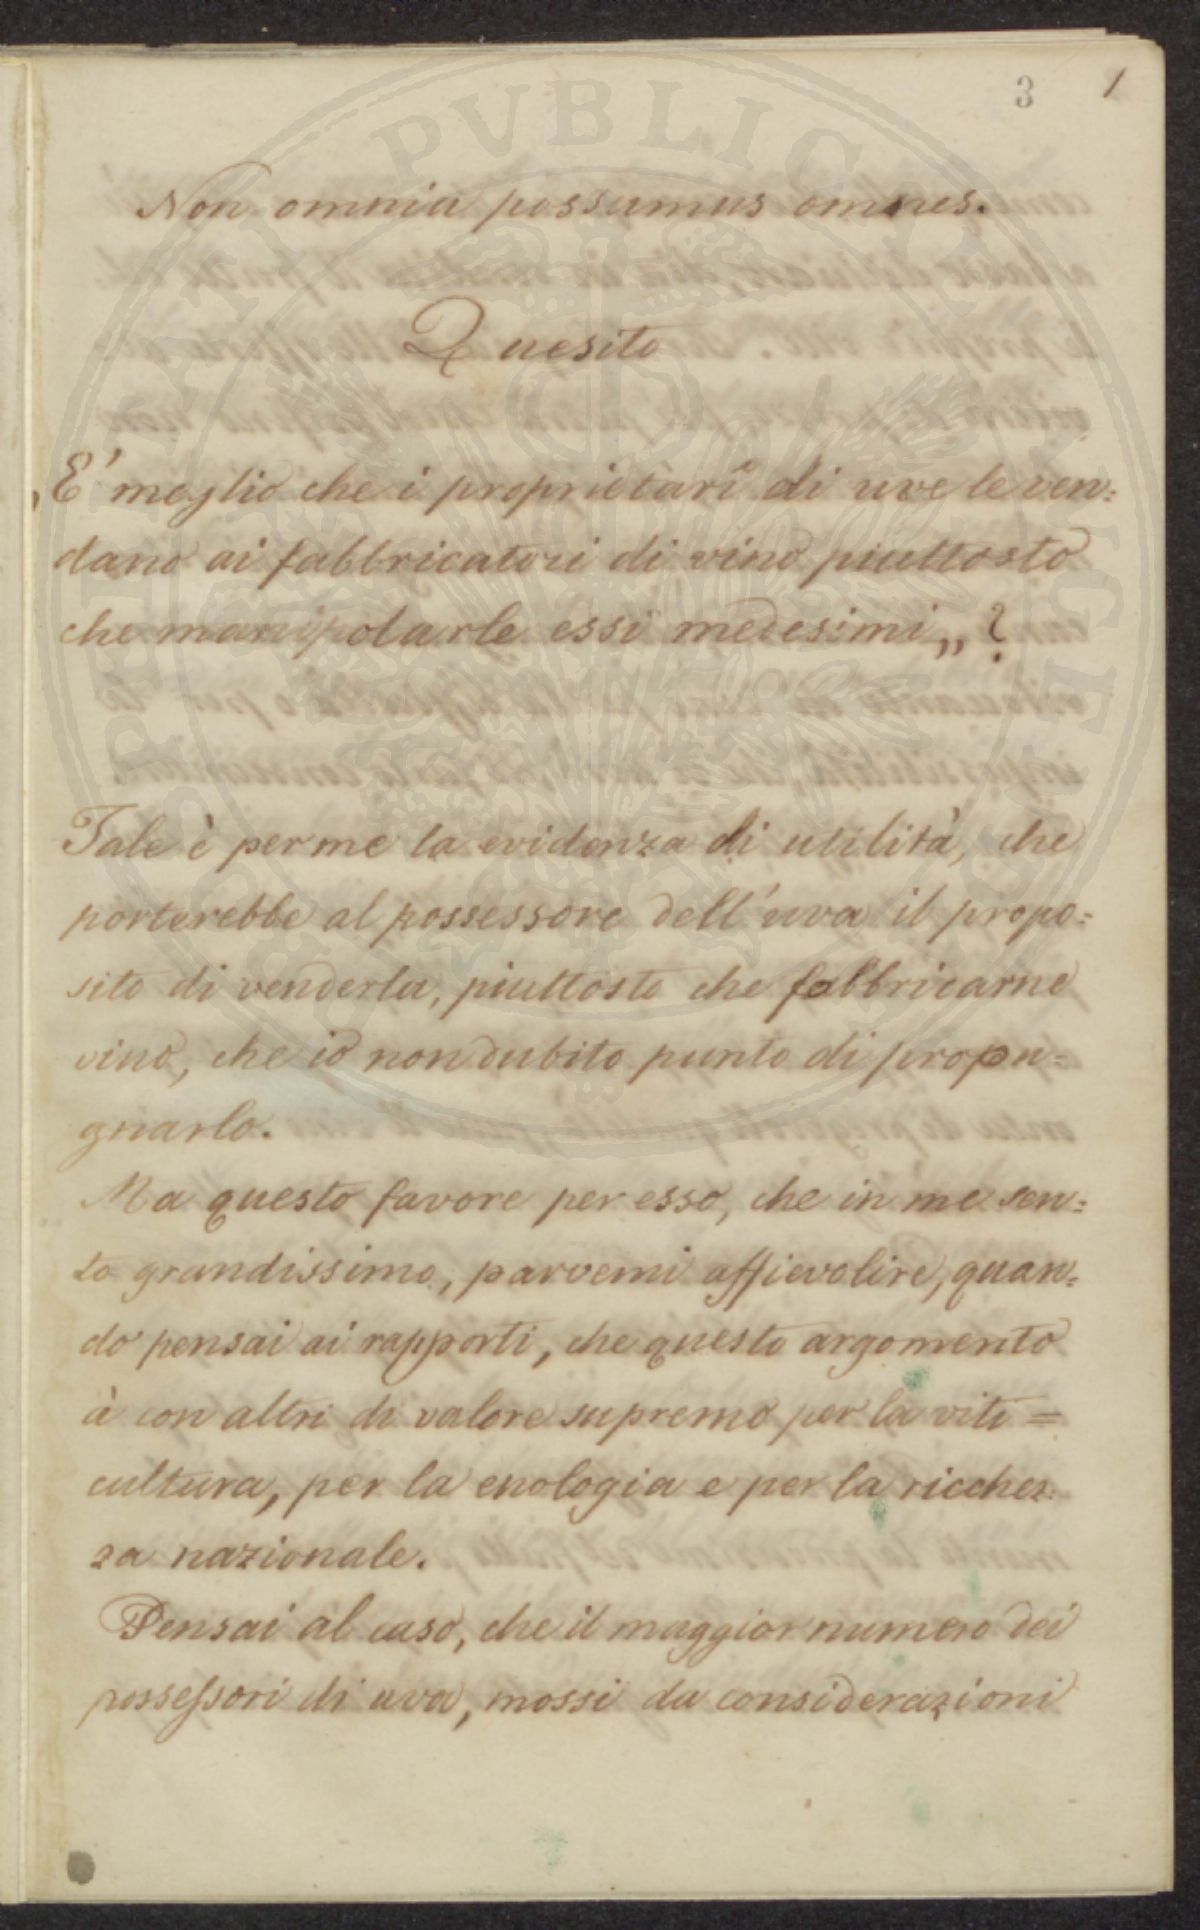 3 1
Non omnia possumus omnes.
Quesito
„E' meglio che i proprietarî di uve le ven=
dano ai fabbricatori di vino piuttosto
che manipolarle essi medesimi„?
Tale è per me la evidenza di utilità, che
porterebbe al possessore dell'uva il propo=
sito di venderla, piuttosto che fabbricarne
vino, che io non dubito punto di propu=
gnarlo.
Ma questo favore per esso, che in me sen=
to grandissimo, parvemi affievolire, quan=
do pensai ai rapporti, che questo argomento
à con altri di valore supremo per la viti=
cultura, per la enologia e per la ricchez=
za nazionale.
Pensai al caso, che il maggior numero dei
possessori di uva, mossi da considerazioni